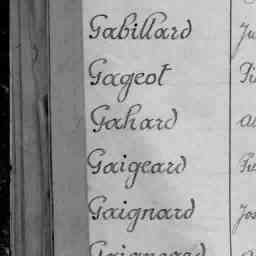 Gabillard
Gageot
Gahard
Gaigeard
Gaignard